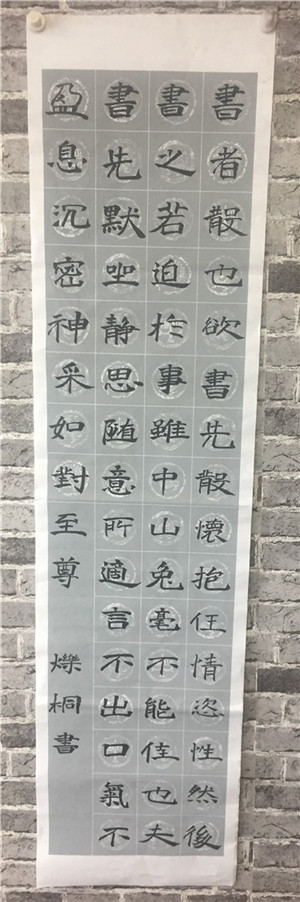 書者散也欲書先散懷抱任情恣性然後
書之若迫於事雖中山兔毫不能佳也夫
書先默坐靜思隨意所適言不出口氣不
盈息沉密神采如對至尊 爍桐書